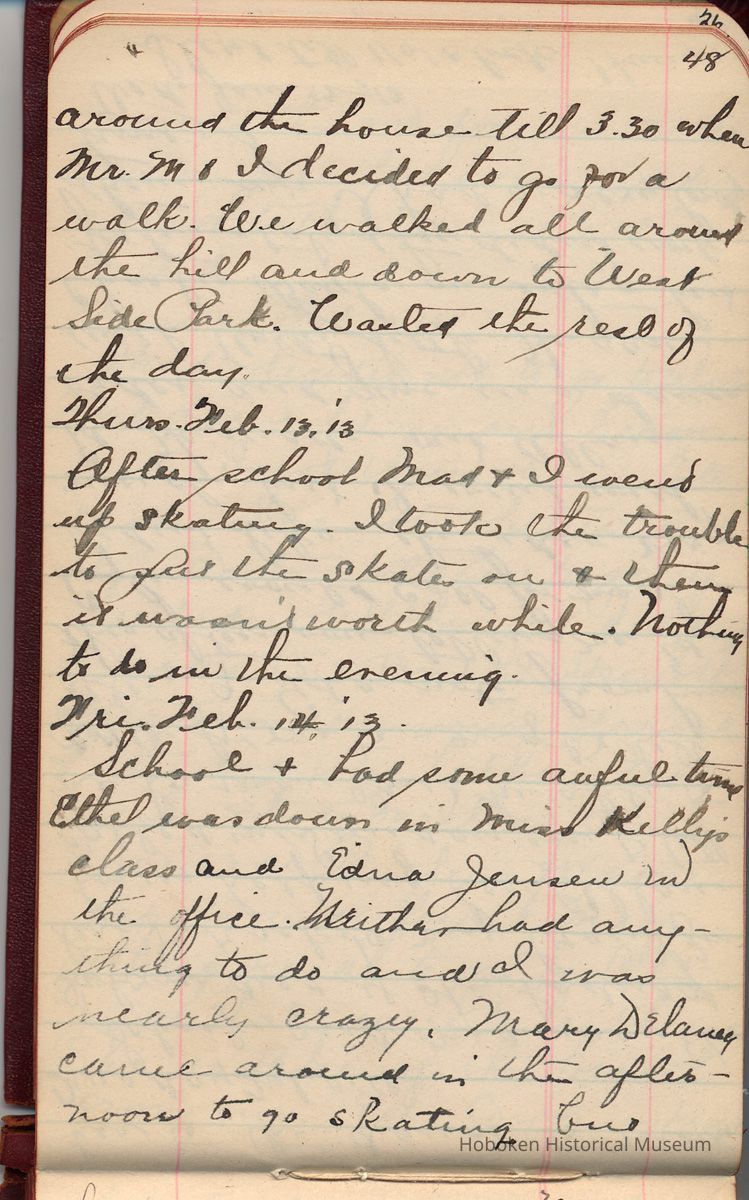 26
48
around the house till 3.30 when
Mr. M & I decided to go for a
walk. We walked all around
the hill and down to West
Side Park. Wasted the rest of
the day.
Thurs. Feb. 13, '13
After school Mad & I went
up skating. I took the trouble
to put the skates on & then
it wasn't worth while. Nothing
to do in the evening.
Fri. Feb. 14, '13.
School & had some awful time
Ethel was down in Miss Kelly's
class and Edna Jensen in
the office. Neither had any-
thing to do and I was
nearly crazy. Mary Delaney
came around in the after-
noon to go skating but
Hoboken Historical Museum